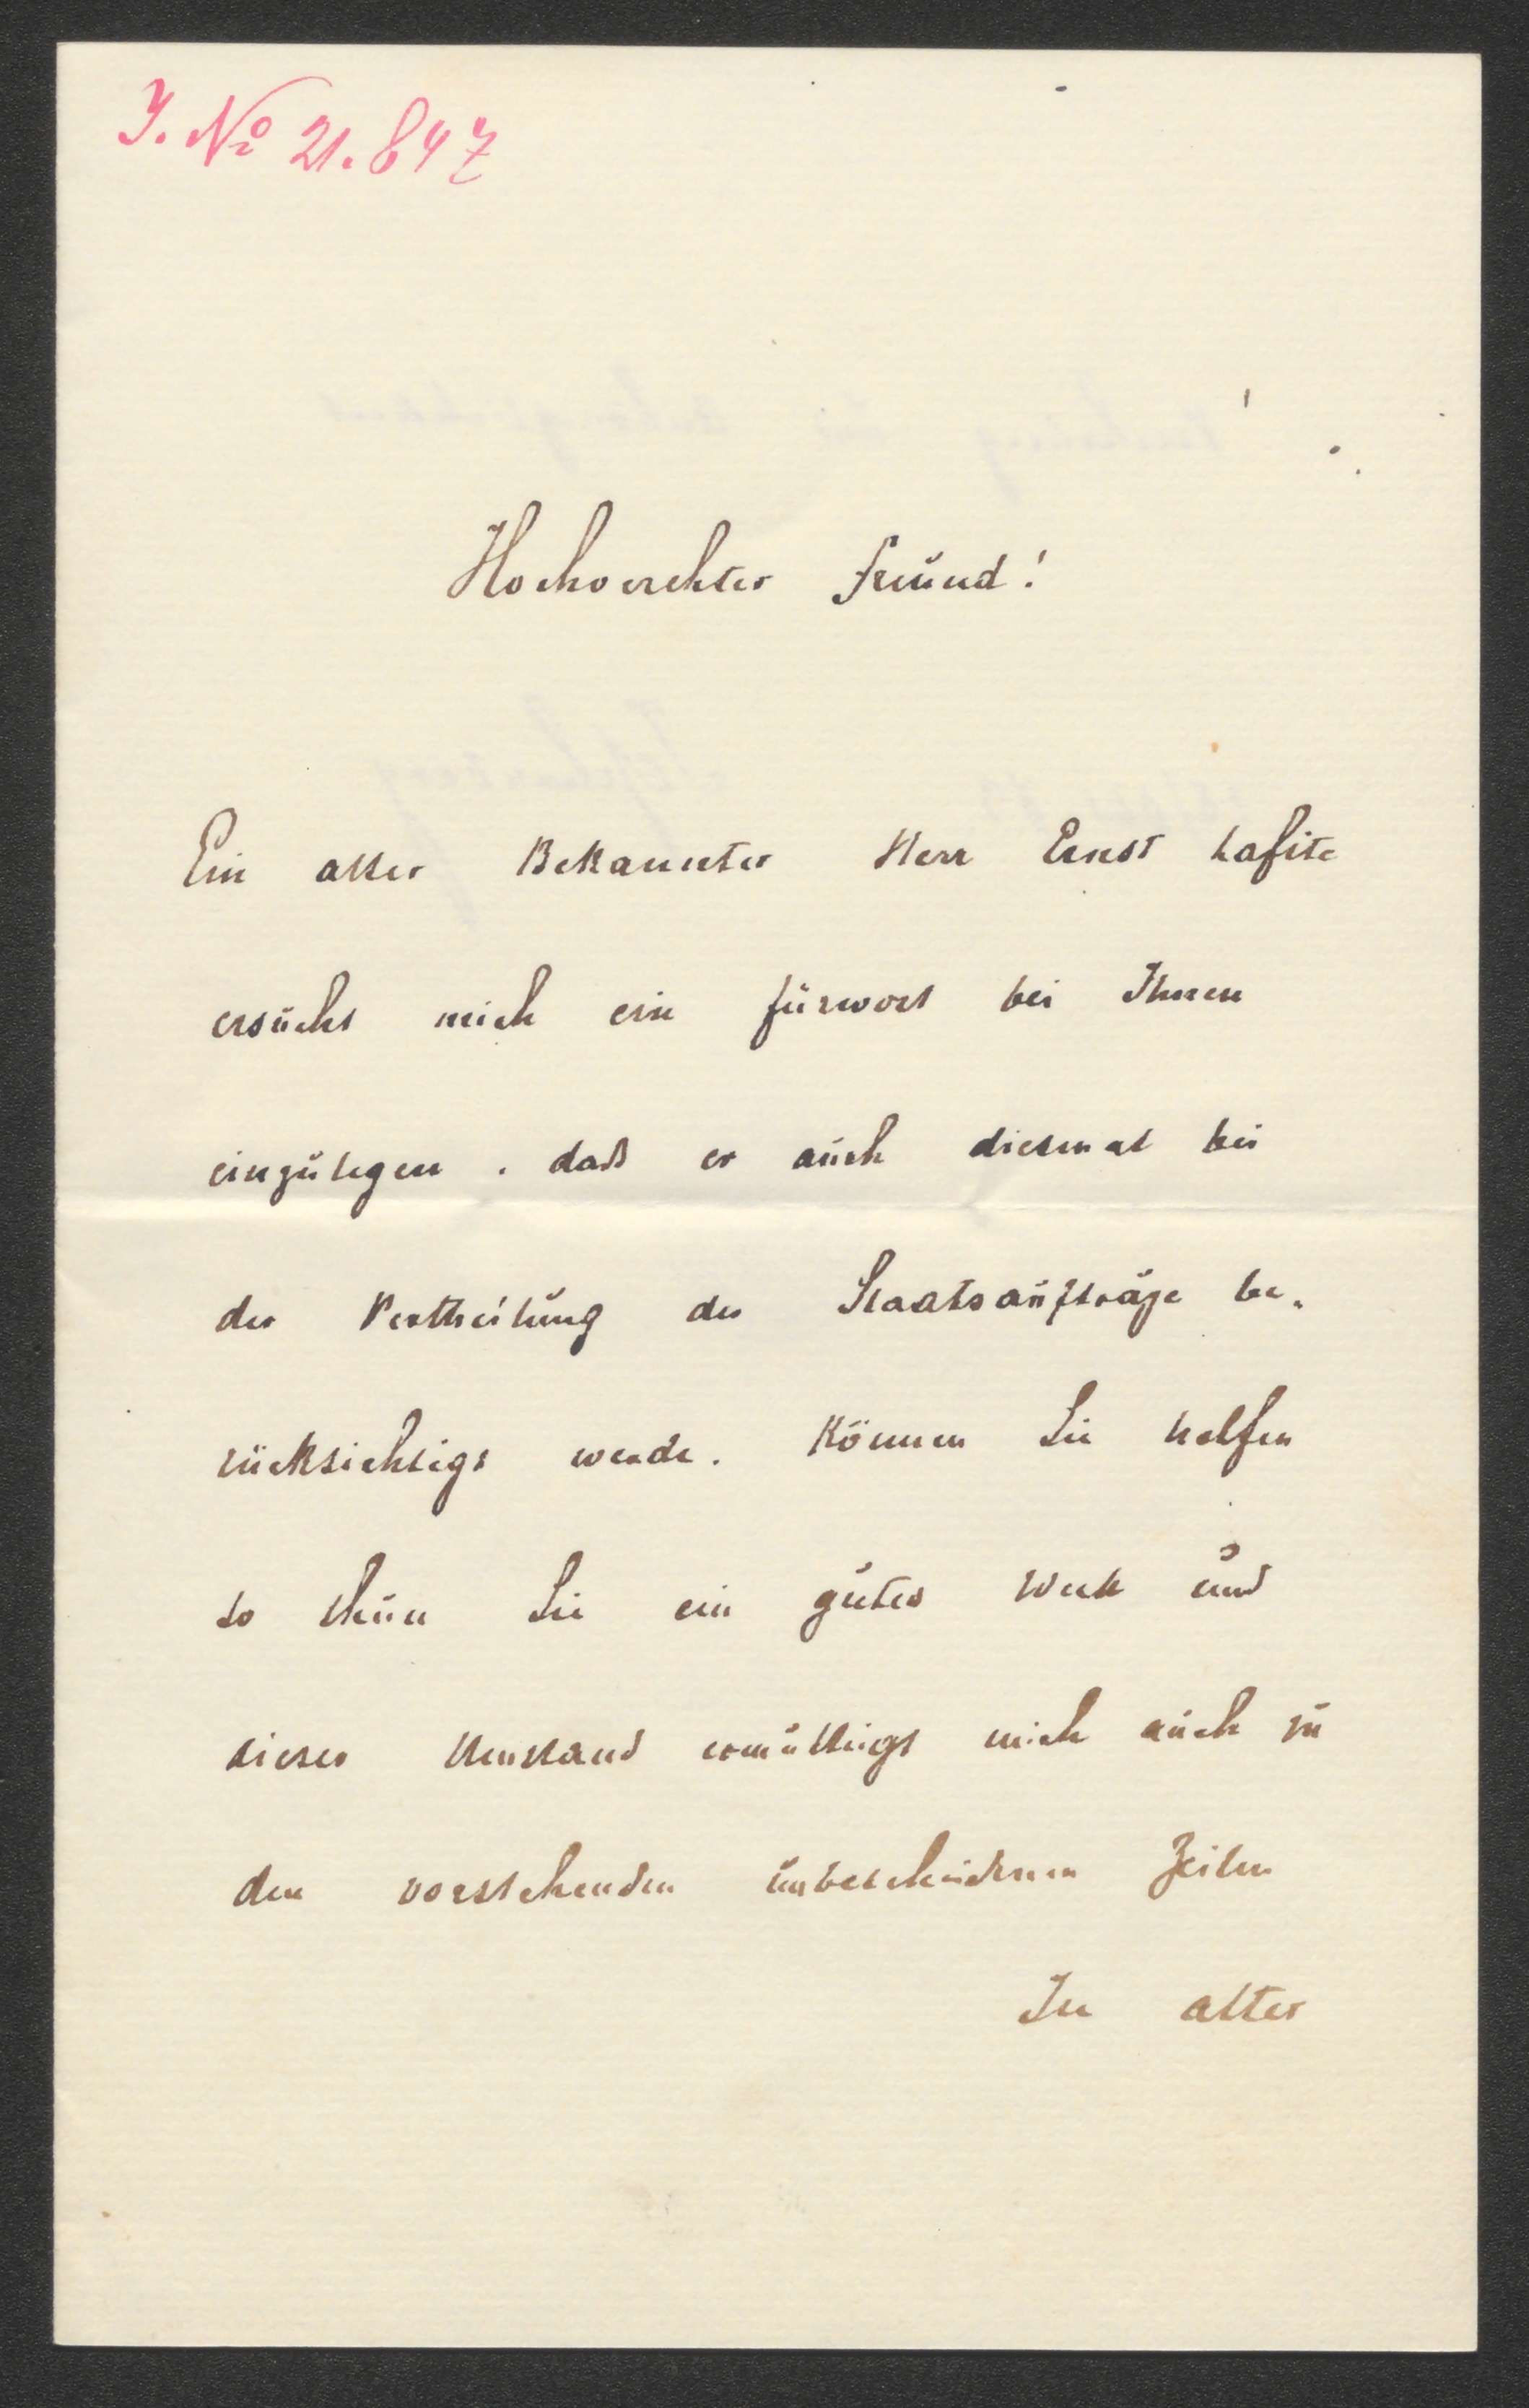 J. No 21.847
Hochverehrter Freund!
Ein alter Bekannter Herr Ernst Lafite
ersucht mich ein Fürwort bei Ihnen
einzulegen, daß er auch diesmal bei
der Vertheilung der Staatsaufträge be-
rücksichtigt werde. Können Sie helfen
so thun Sie ein gutes Werk und
dieser Umstand ermüthigt mich auch zu
den vorstehenden unbescheidenen Zeilen
In alter